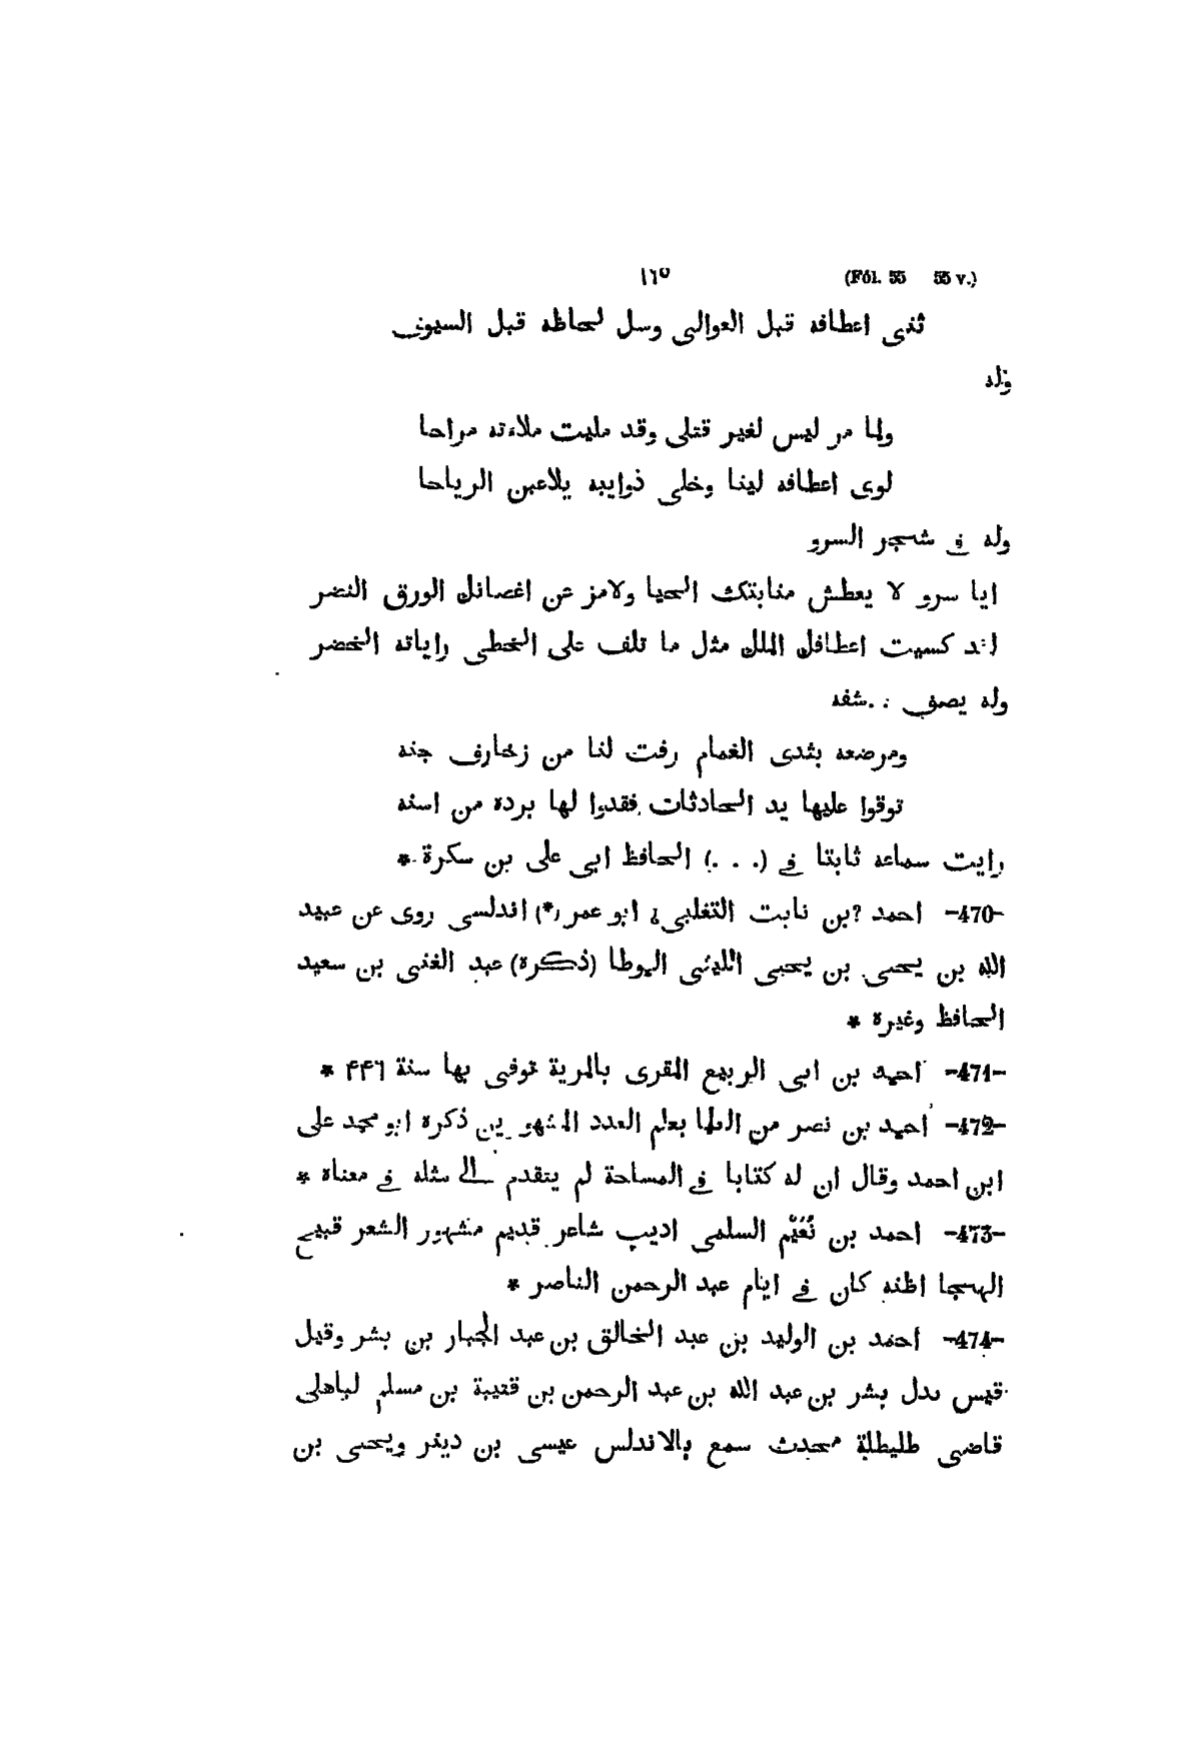 ١٦٥ (Fól. 55 55 v.)
ثنى اعطافه قبل العوالى وسل لحاظه قبل السيوف
وله
ولما مر ليس لغير قتلى وقد مليت ملاءته مراحا
لوى اعطافه لينا وخلى ذوايبه يلاعبن الرياحا
وله فى شجر السرو
ايا سرو لا يعطش منابتك الحيا ولا من اغصانك الورق النضر
كسيت اعطافك الملك مثل ما تلف على الخطى راياته الخضر
وله يصف
ومرضعه بثدى الغمام رفت لنا من زخارف جنه
توقوا عليها يد الحادثات فقدوا لها برده من اسنه
رايت سماعه ثابتا فى (. . .) الحافظ ابى على بن سكرة *
-470- احمد ?بن نابت التغلبى? ابو عمر (*) اندلسى روى عن عبيد
الله بن يحيى بن يحيى الليثى الموطا (ذكره) عبد الغنى بن سعيد
الحافظ وغيره *
-471- احمد بن ابى الربيع المقرى بالمرية توفى بها سنة ۴۴٦ *
-472- احمد بن نصر من العلما بعلم العدد المشهورين ذكره ابو محمد على
ابن احمد وقال ان له كتابا فى المساحة لم يتقدم الى مثله فى معناه *
-473- احمد بن نُعَيْم السلمى اديب شاعر قديم مشهور الشعر قبيح
الهجا اظنه كان فى ايام عبد الرحمن الناصر *
-474- احمد بن الوليد بن عبد الخالق بن عبد الجبار بن بشر وقيل
قيس بدل بشر بن عبد الله بن عبد الرحمن بن قتيبة بن مسلم لباهلى
قاضى طليطلة محدث سمع بالاندلس عيسى بن دينر ويحيى بن